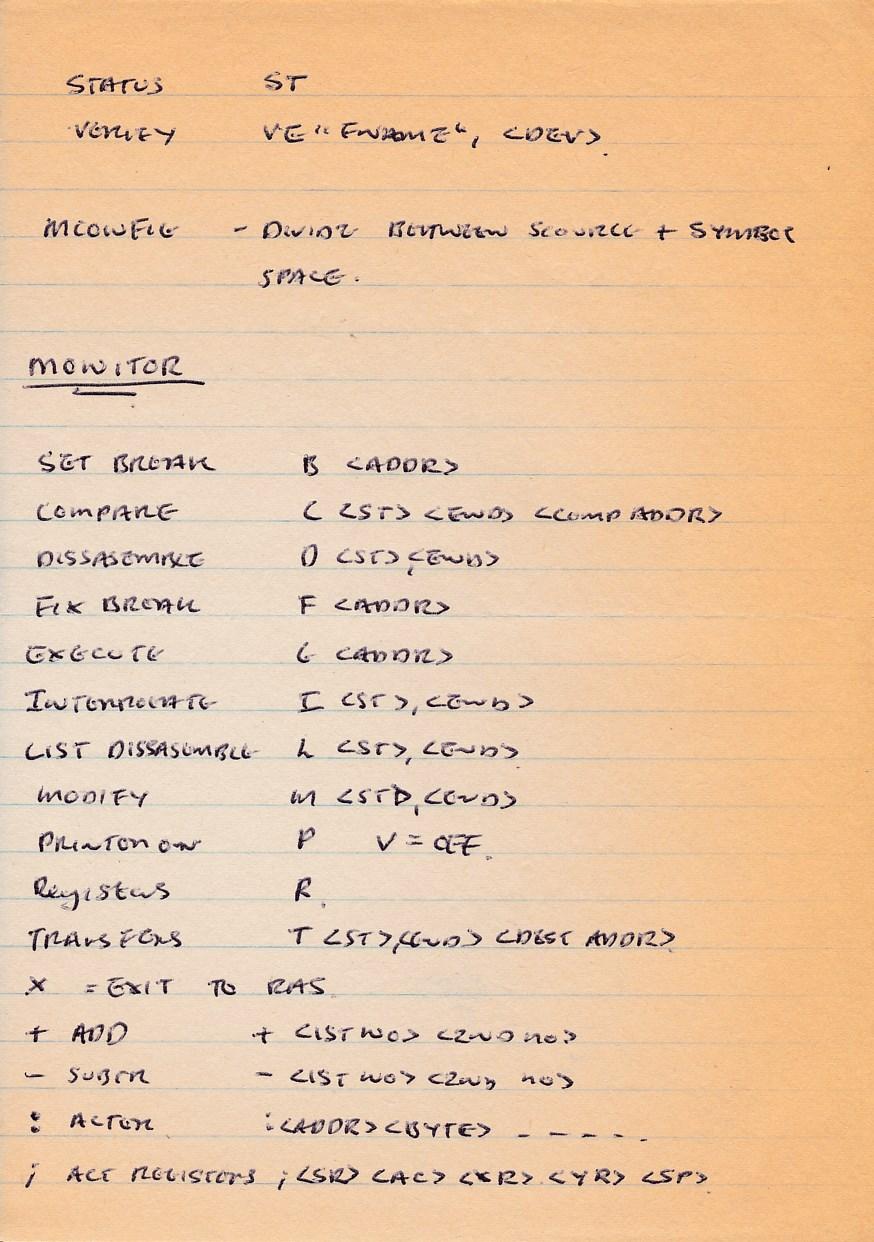 STATUS ST
VERIFY VE "FNAME", <DEV>
MCONFIG - DIVIDE BETWEEN SOURCE + SYMBOL
SPACE.
MONITOR
SET BREAK B <ADDR>
COMPARE C <ST> <END> <COMP ADDR>
DISSASEMBLE D <ST>,<END>
FIX BREAK F <ADDR>
EXECUTE G <ADDR>
INTERROGATE I <ST>,<END>
LIST DISSASEMBLE L <ST>,<END>
MODIFY M <ST>,<END>
PRINTER ON P V = OFF.
REGISTERS R.
TRANSFERS T <ST>,<END> <DEST ADDR>
X = EXIT TO RAS
+ ADD + <1ST NO> <2ND NO>
- SUBTR - <1ST NO> <2ND NO>
: ALTER :<ADDR> <BYTE> - - - - .
; ALT REGISTERS ; <SR> <AC> <XR> <YR> <SP>